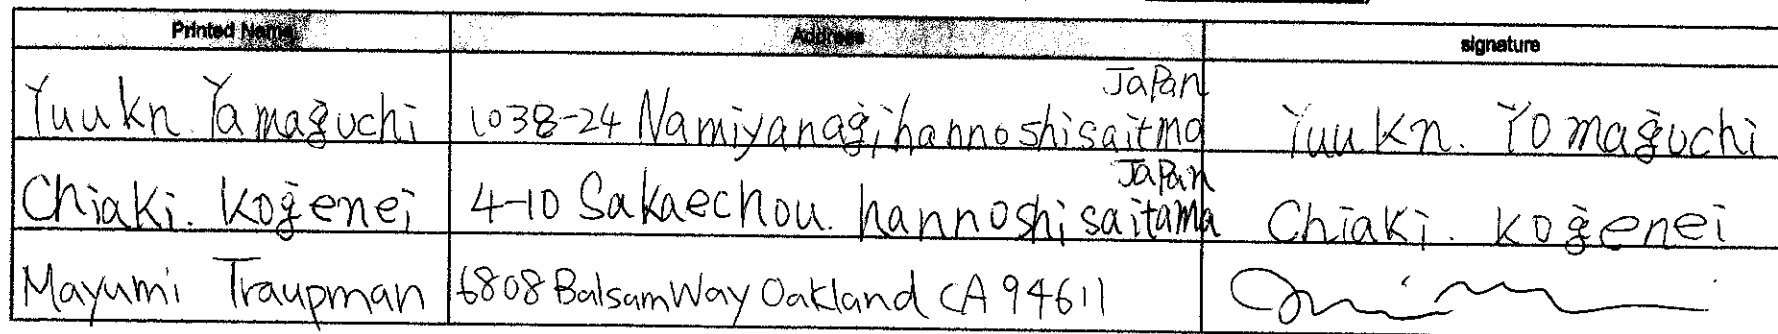 Printed Name Address signature
Yuukn. Yamaguchi 1038-24 Namiyanagihannoshisaitma Japan Yuukn. Yomaguchi
Chiaki. kogenei 4-10 Sakaechou. hannoshisaitama Japan Chiaki. kogenei
Mayumi Traupman 6808 Balsam Way Oakland CA 94611